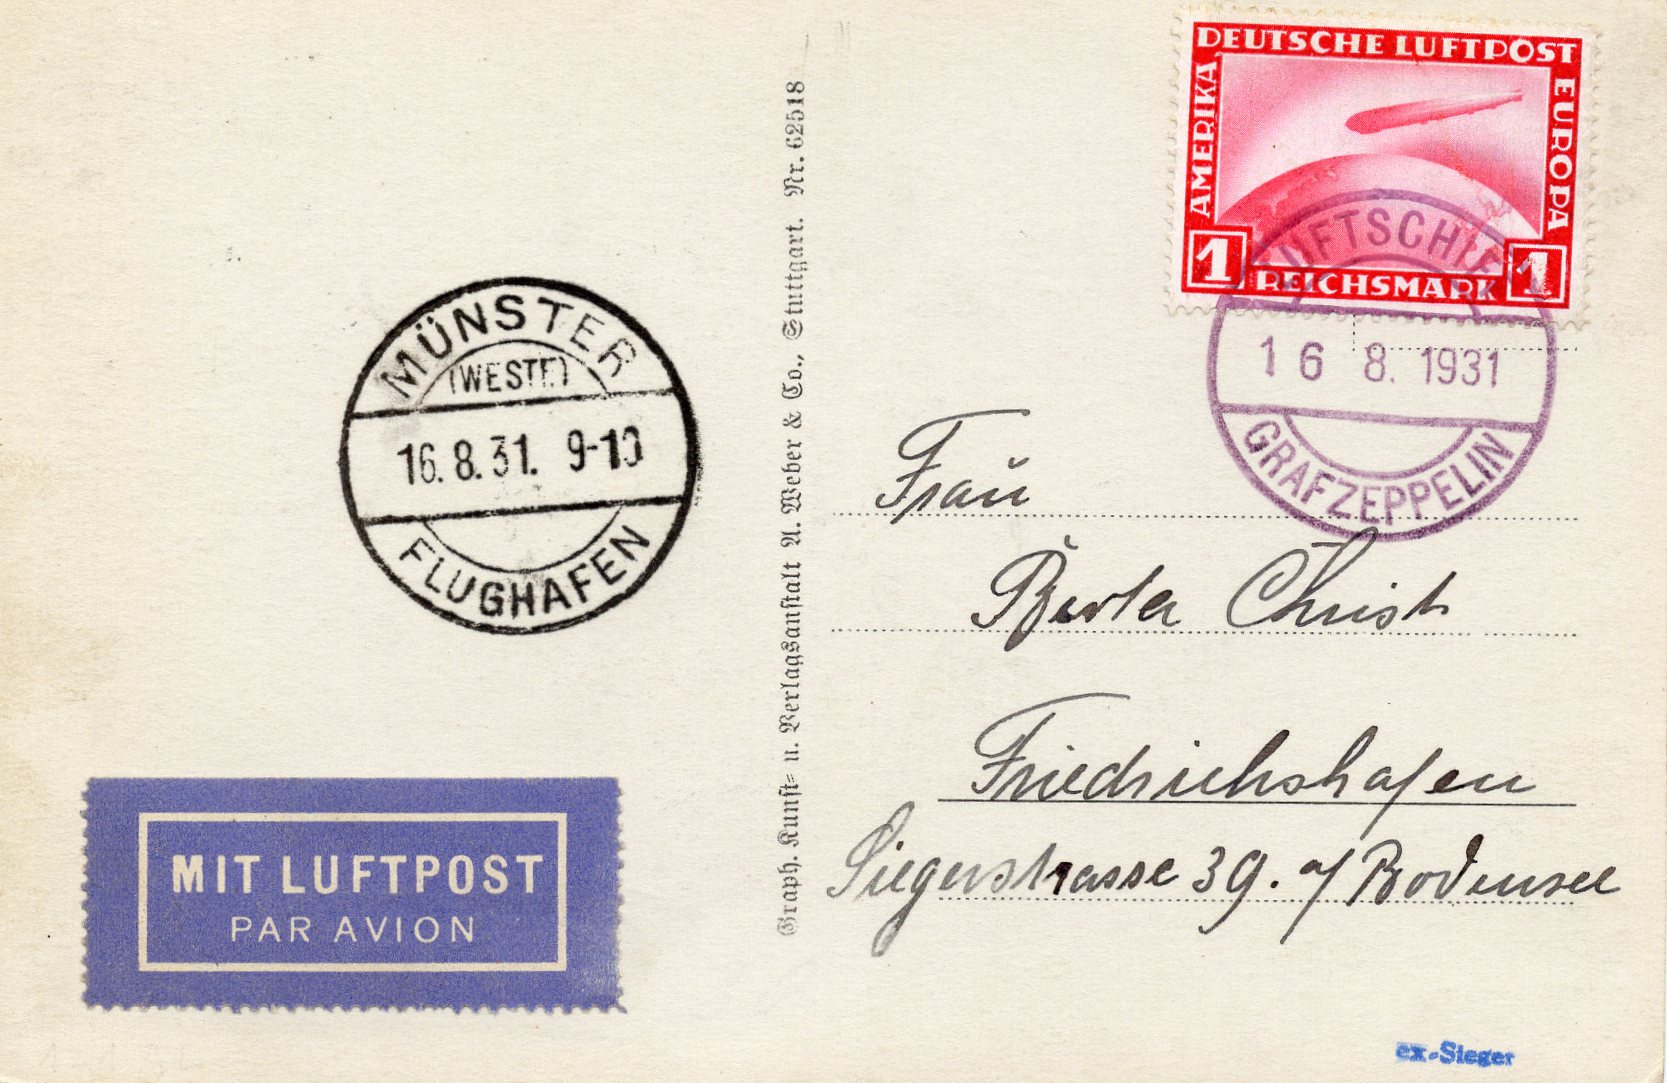 DEUTSCHE LUFTPOST
AMERIKA
EUROPA
1 REICHSMARK 1
LUFTSCHIFF
16 8. 1931
GRAF ZEPPELIN
MÜNSTER
(WESTF.)
16.8.31. 9-10
FLUGHAFEN
Graph. Kunst- u. Verlagsanstalt A. Weber & Co., Stuttgart. Nr. 62518
Frau
Berta Christ
Friedrichshafen
Siegerstrasse 39. a/ Bodensee
MIT LUFTPOST
PAR AVION
ex-Sieger